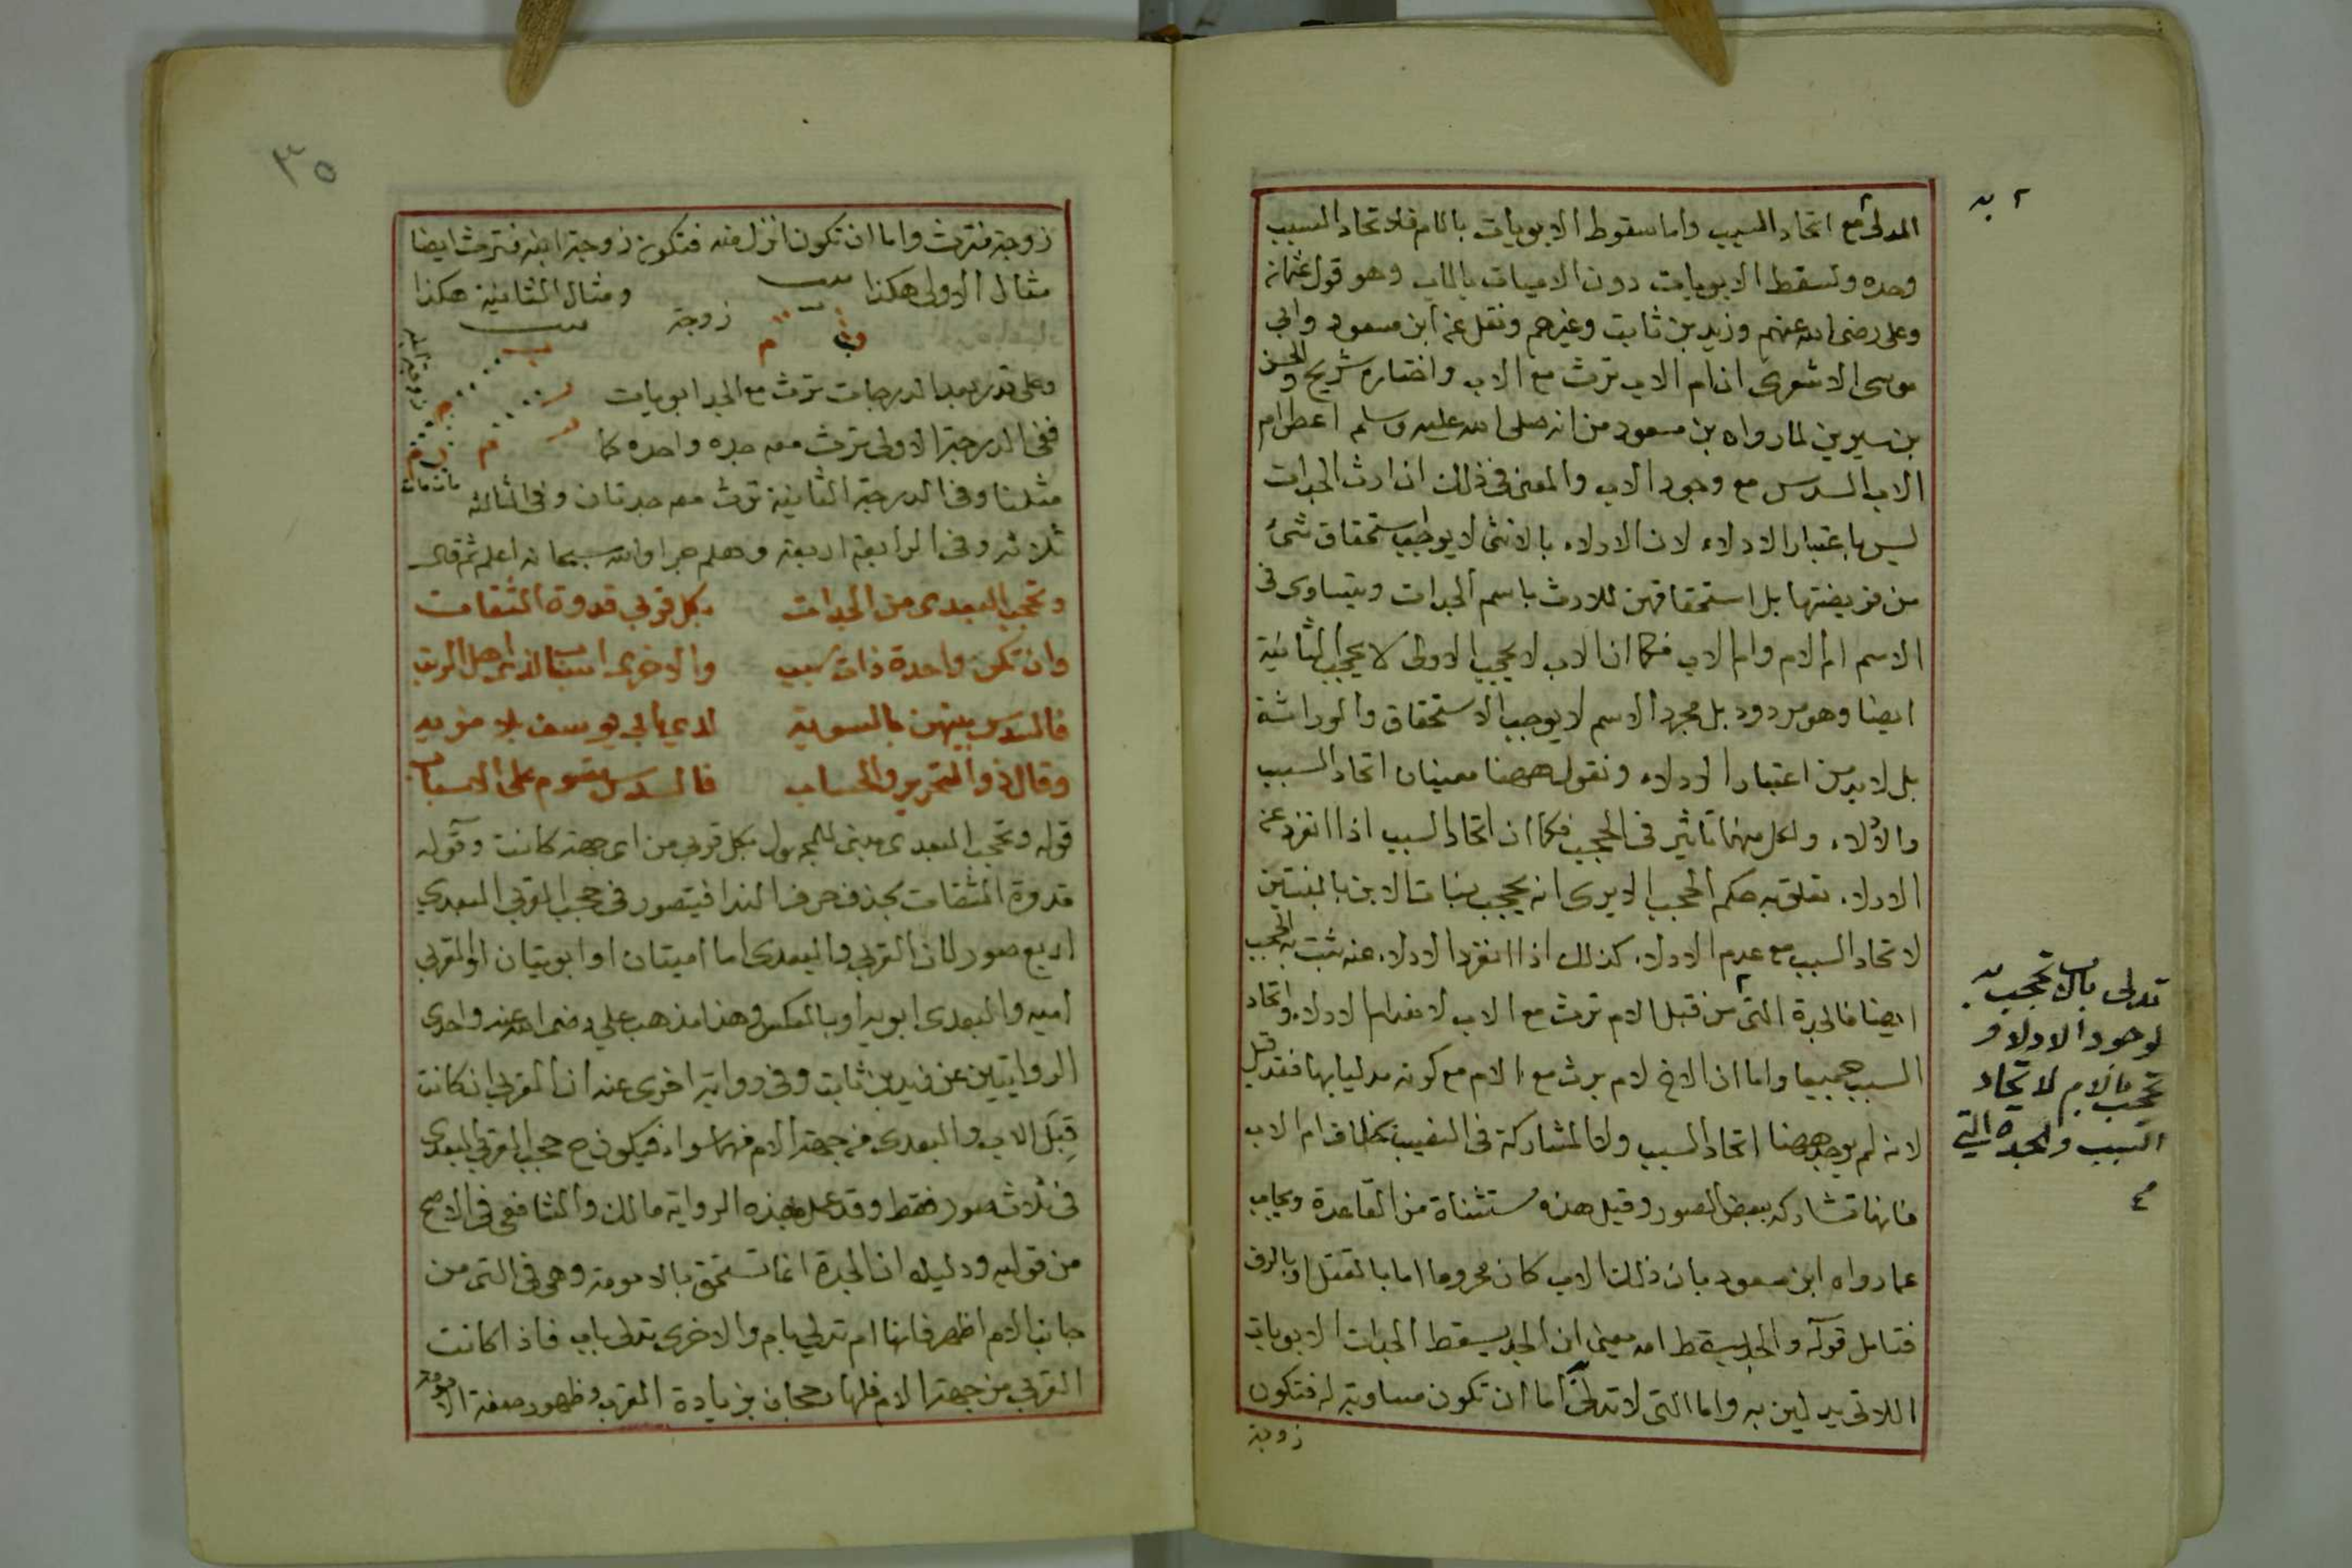 المدلى مع اتحاد السبب واما سقوط الابويات بالام فلاتحاد السبب
وحده وتسقط الابويات دون الاميات بالاب وهو قول عثمان
وعلى رضى الله عنهم وزيد بن ثابت وغيرهم ونقل عن ابن مسعود وابي
موسى الاشعرى ان ام الاب ترث مع الاب واختاره شريح والحسن
بن سيرين لما رواه بن مسعود من انه صلى الله عليه وسلم اعطى ام
الاب السدس مع وجود الاب والمعنى فى ذلك ان ارث الجدات
ليس باعتبار الادلاء لان الادلاء بالانثى لا يوجب استحقاق شئ
من فريضتها بل استحقاقهن للارث باسم الجدات ويتساوى فى
الاسم ام الام وام الاب فكما ان الاب لا يحجب الاولى لا يحجب الثانية
ايضا وهو مردود بل مجرد الاسم لا يوجب الاستحقاق والوراثة
بل لا بد من اعتبار الادلاء ونقول ههنا معينان اتحاد السبب
والادلاء ولكل منهما تاثير فى الحجب فكما ان اتحاد السبب اذا انفرد عن
الادلاء تعلق به حكم الحجب الا يرى انه يحجب بنات الابن بالبنتين
لاتحاد السبب مع عدم الادلاء كذلك اذا انفرد الادلاء عنه ثبت به الحجب
ايضا فالجدة التى من قبل الام ترث مع الاب لانعدام الادلاء واتحاد
السبب جميعا واما ان الاخ لام يرث مع الام مع كونه مدليا بها فقد قيل
لانه لم يوجد ههنا اتحاد السبب ولا المشاركة فى النصيب بخلاف ام الاب
فانها تشاركه ببعض الصور وقيل هذه مستثناة من القاعدة ويجاب
عما رواه ابن مسعود بان ذلك الاب كان محروما اما بالقتل او بالرق
فتامل قوله والجد يسقط امه معنى ان الجد يسقط الجدات الابويات
اللاتى يدلين به واما التى لا تدلى اما ان تكون مساوية له فتكون
زوجة
٢ به
تدلى بالاب تحجب به
لوجود الادلاء و
تحجب بالام لاتحاد
السبب والجدة التي
٣٥
زوجة فترث واما ان تكون انزل منه فتكون زوجة ابنه فترث ايضا
مثال الاولى هكذا ميت ومثال الثانية هكذا
زوجة ميت
وعلى قدر بعد الدرجات ترث مع الجد ابويات
ففى الدرجة الاولى ترث معه جدة واحدة كما
مثلنا وفى الدرجة الثانية ترث معه جدتان وفى الثالثه
ثلاثه وفى الرابعة اربعة وهلم جرا والله سبحانه اعلم ثم قال
وتحجب البعدى من الجدات بكل قربى قدوة الثقات
وان تكن واحدة ذات سبب والاخرى اسباب لذى اهل الرتب
فالسدس بينهن بالسوية لدى ابي يوسف بلا مزيه
وقال ذو التحرير والحساب فالسدس مقسوم على الاسباب
قوله وتحجب البعدى مبنى للمجهول بكل قربى من اى جهة كانت وقوله
قدوة الثقات بحذف حرف الندا فيتصور فى حجب القربى البعدي
اربع صور لان القربى والبعدى اما اميتان او ابويتان او القربى
اميه والبعدى ابويه او بالعكس وهذا مذهب علي رضى الله عنه واحدى
الروايتين عن زيد بن ثابت وفى رواية اخرى عنه ان القربى ان كانت
قبل الاب والبعدى من جهة الام فهما سواء فيكون ح حجب القربى البعدى
فى ثلاث صور فقط وقد عمل بهذه الرواية مالك والشافعى فى الاصح
من قوليه ودليله ان الجدة انما تستحق بالامومة وهى فى التى من
جانب الام اظهر فانها ام تدلي بام والاخرى تدلى باب فاذا كانت
القربى من جهة الام فلها رجحان بزيادة القرب وظهور صفة الامومة